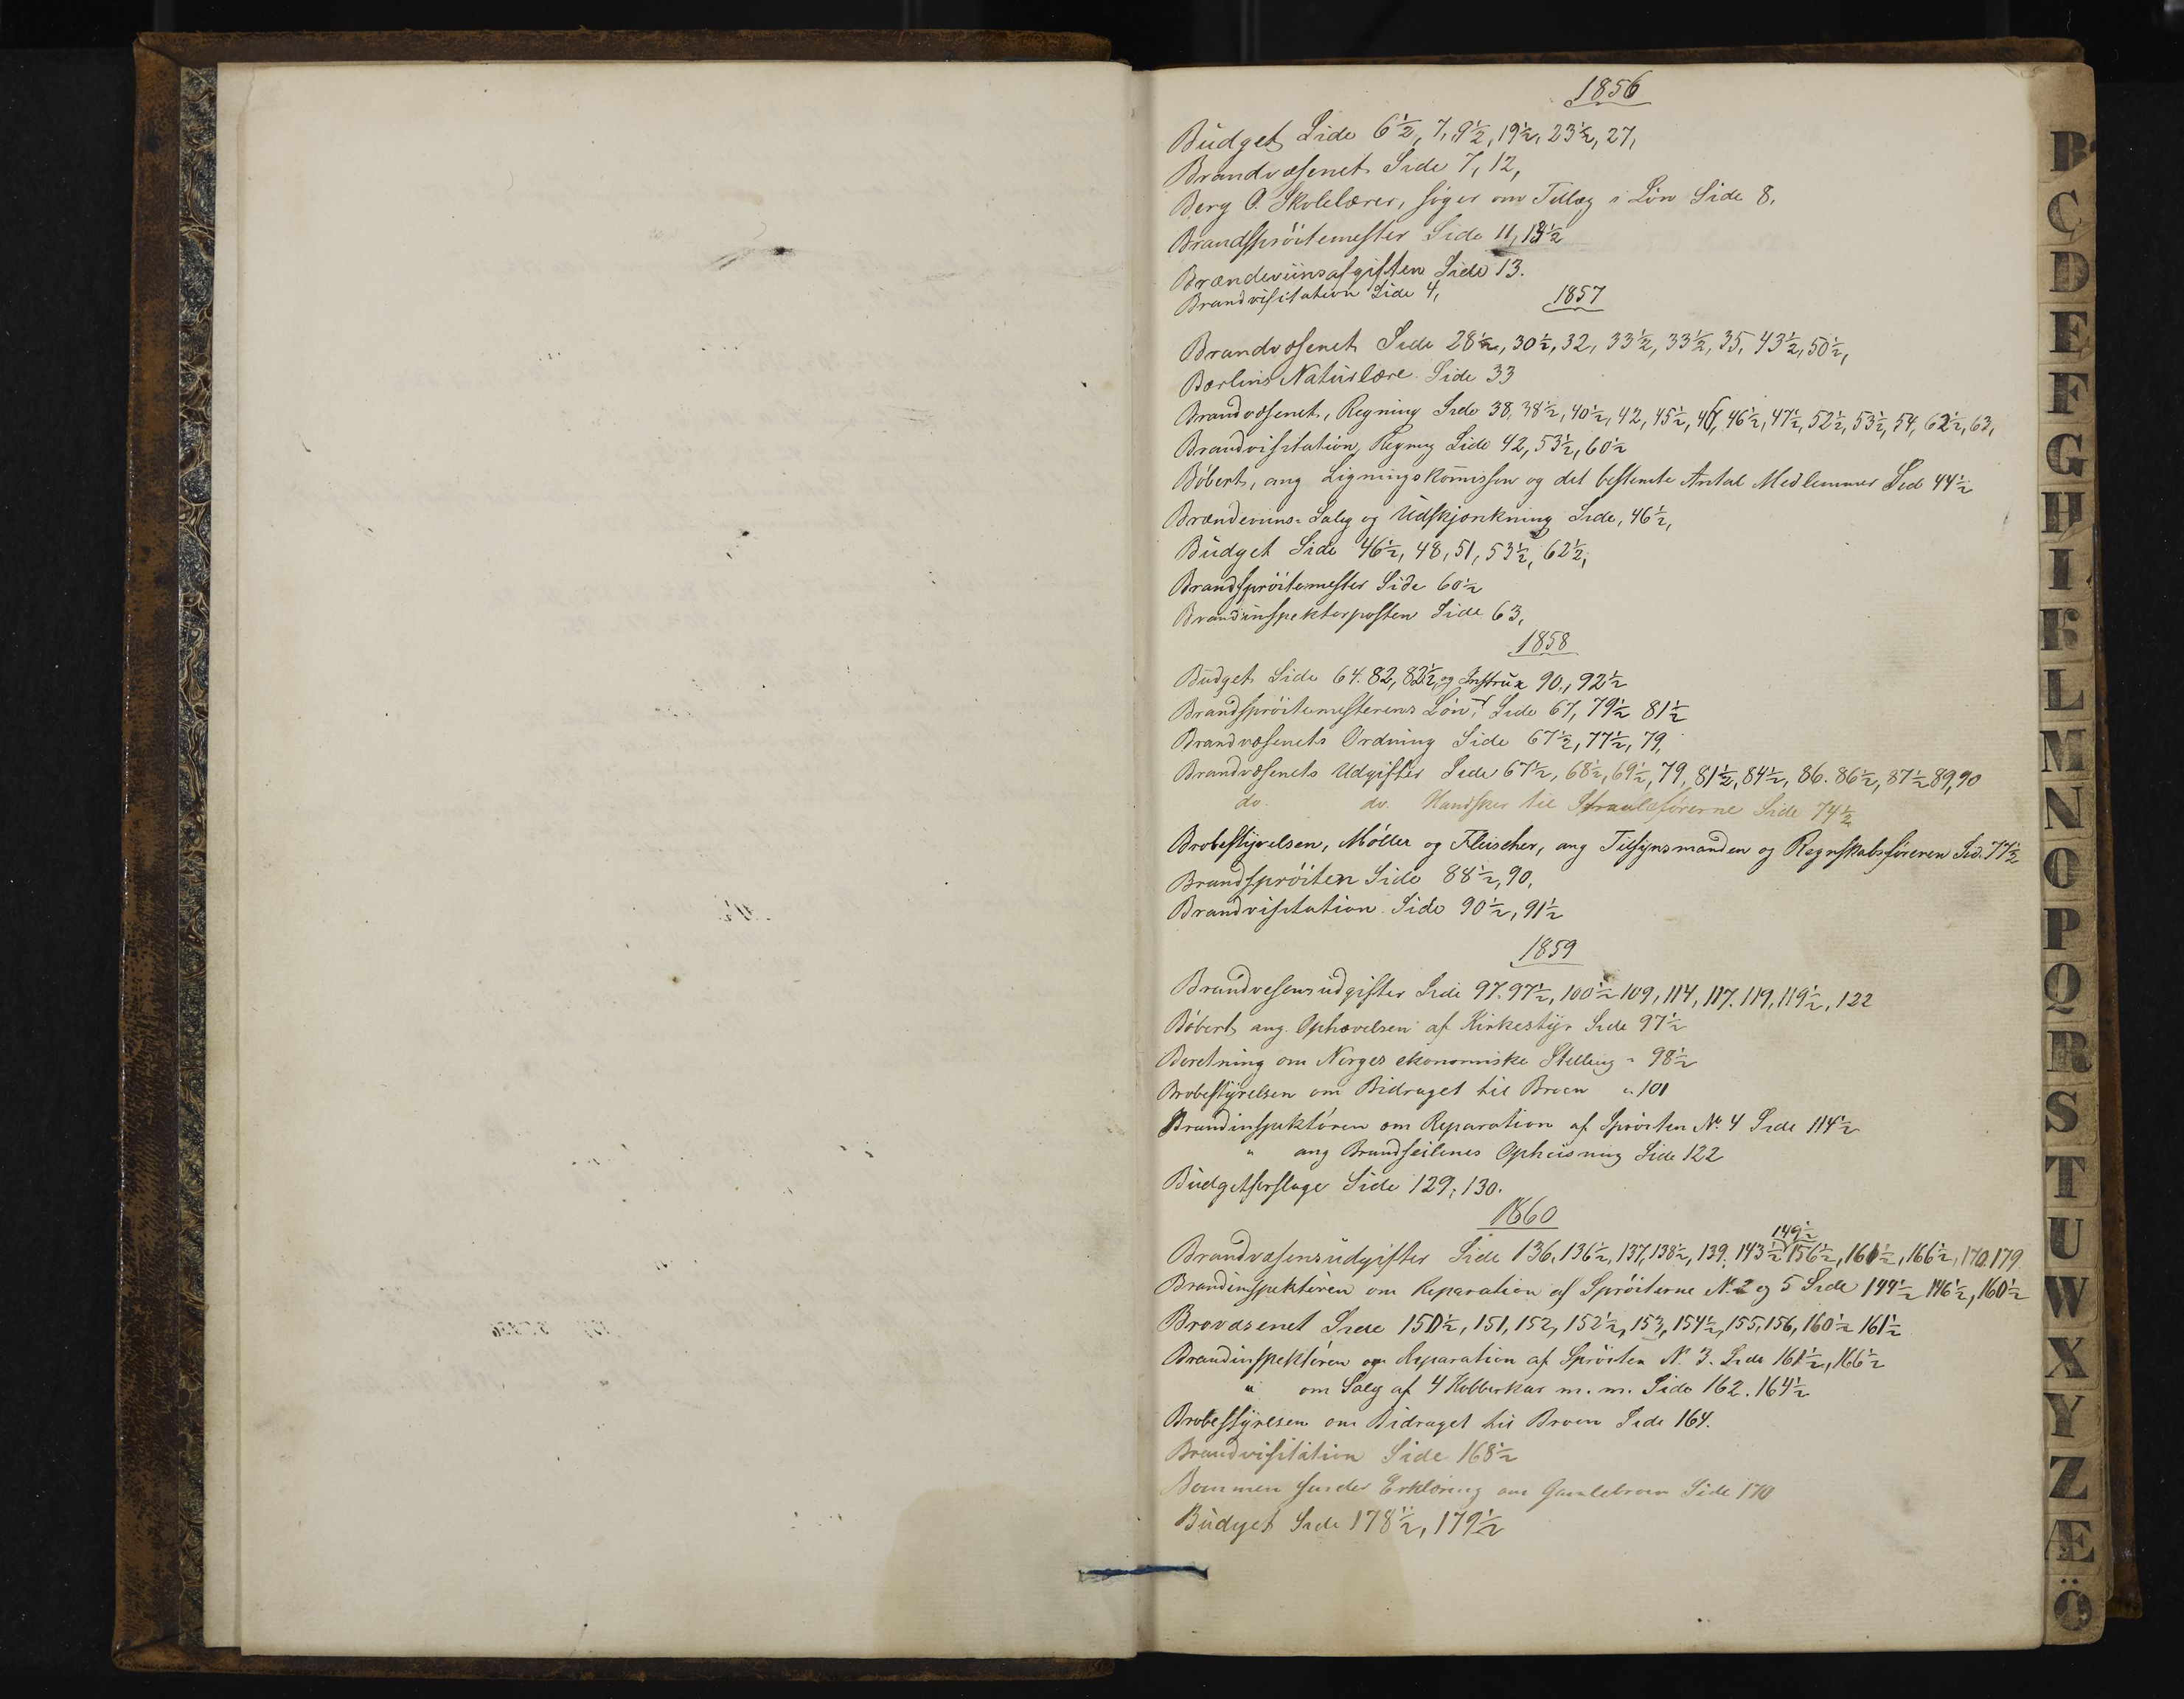 1856
Büdget Side 6½, 7, 9½, 19½, 23½, 27,
Brandvæsenet Side 7, 12,
Berg O. Skolelærer, søger om Tillæg i Løn Side 8.
Brandsprøitemester Side 11, 13½
Brændeviinsafgiften Side 13.
Brandvisitation Side 4,
1857
Brandvæsenet Side 28½, 30½, 32, 33½, 33½, 35, 43½, 50½,
Bærlins Natürlære Side 33
Brandvæsenet, Regning Side 38, 38½, 40½, 42, 45½, 46, 46½, 47½, 52½, 53½, 54, 62½, 63,
Brandvisitation, Regning Side 42, 53½, 60½
Bøbert, ang Ligningskom̄issen og det bestemte Antal Medlemmer Sid 44½
Brændeviins-Salg og Üdskjænkning Side, 46½,
Büdget Side 46½, 48, 51, 53½, 62½,
Brandsprøitemester Side 60½
Brandinspektørposten Side 63,
1858
Büdget Side 64. 82, 82½, 90, 92½
Brandsprøitemesterens Løn, og Instrux Side 67, 79½ 81½
Brandvæsenets Ordning Side 67½, 77½, 79,
Brandvæsenets Udgifter Side 67½, 68½, 69½, 79, 81½, 84½, 86. 86½, 87½ 89, 90
do. do. Handsker til Straaleførerne Side 74½
Brobestyrelsen, Møller og Fleischer, ang Tilsynsmanden og Regnskabsføreren Sid. 77½
Brandsprøiten Side 88½, 90,
Brandvisitation Side 90½, 91½
1859
Brandvæsensüdgifter Side 97. 97½, 100½ 109, 114, 117. 119, 119½, 122
Bøbert ang. Ophævelsen af Kirkestyr Side 97½
Beretning om Norges ekonomiske Stilling " 98½
Brobestyrelsen om Bidraget til Broen " 101
Brandinspektøren om Reparation af Sprøiten No 4 Side 114½
" ang Brandseilenes Opheisning Side 122
Büdgetforslage Side 129, 130.
1860
Brandvæsensüdgifter Side 136, 136½, 137, 138½, 139, 143½ 149½ 156½, 161½, 166½, 170. 179.
Brandinspektøren om Reparation af Sprøiterne N. 2 og 5 Side 144½ 146½, 160½
Brovæsenet Side 150½, 151, 152, 152½, 153, 154½, 155, 156, 160½ 161½
Brandinspektøren om Reparation af Sprøiten N. 3. Side 161½, 166½
" om Salg af 4 Kobberkar m. m. Side 162. 164½
Brobestyrelsen om Bidraget til Broen Side 164.
Brandvisitation Side 168½
Bommen Erklæring om Gamlebroen Side 170
Büdget Side 178½, 179½
B
C
D
E
F
G
H
I
K
L
M
N
O
P
Q
R
S
T
U
W
X
Y
Z
Æ
Ö